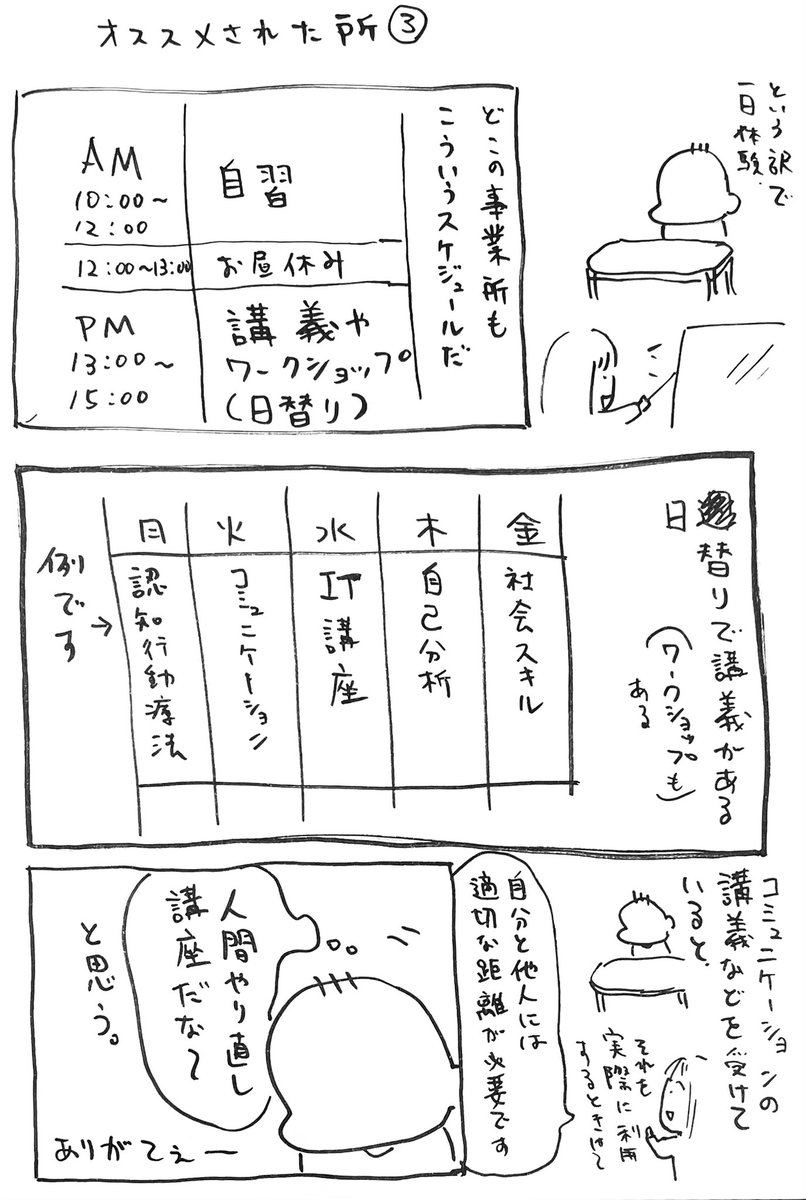 オススメされた所③
という訳で
一日体験
どこの事業所も
こういうスケジュールだ
AM
10:00～
12:00
自習
12:00~13:00
お昼休み
PM
13:00～
15:00
講義や
ワークショップ
(日替り)
日替りで講義がある
(ワークショップも)
ある
例です→
月
火
水
木
金
認知行動療法
コミュニケーション
IT講座
自己分析
社会スキル
コミュニケーションの
講義などを受けて
いると、
それを
実際に利用
するときは
自分と他人には
適切な距離が必要です
人間やり直し
講座だな～
と思う。
ありがてぇー